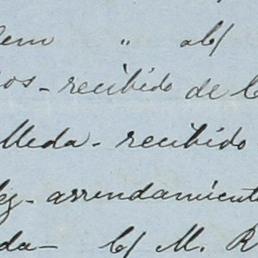 em " ab/
os - recibido de
lleda - recibido
ez - arrendamiento
da - b/ M. R